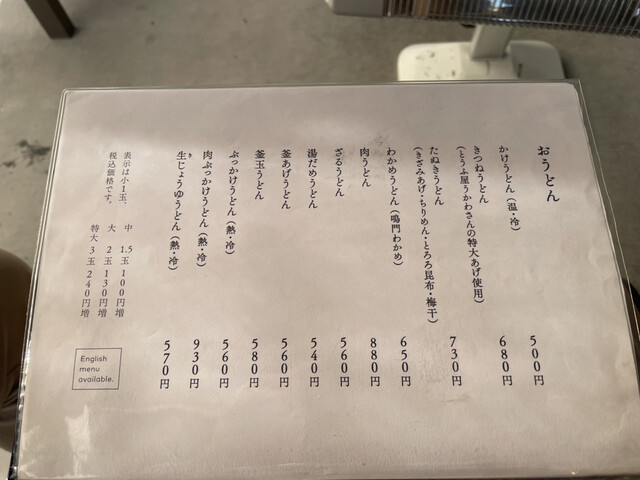 おうどん
かけうどん（温・冷） 500円
きつねうどん 680円
（とうふ屋うかわさんの特大あげ使用）
たぬきうどん 730円
（きざみあげ・ちりめん・とろろ昆布・梅干）
わかめうどん（鳴門わかめ） 650円
肉うどん 880円
ざるうどん 560円
湯だめうどん 540円
釜あげうどん 560円
釜玉うどん 580円
ぶっかけうどん（熱・冷） 560円
肉ぶっかけうどん（熱・冷） 930円
生じょうゆうどん（熱・冷） 570円
表示は小1玉、
税込価格です。
中 1.5玉 100円増
大 2玉 130円増
特大 3玉 240円増
English
menu
available.